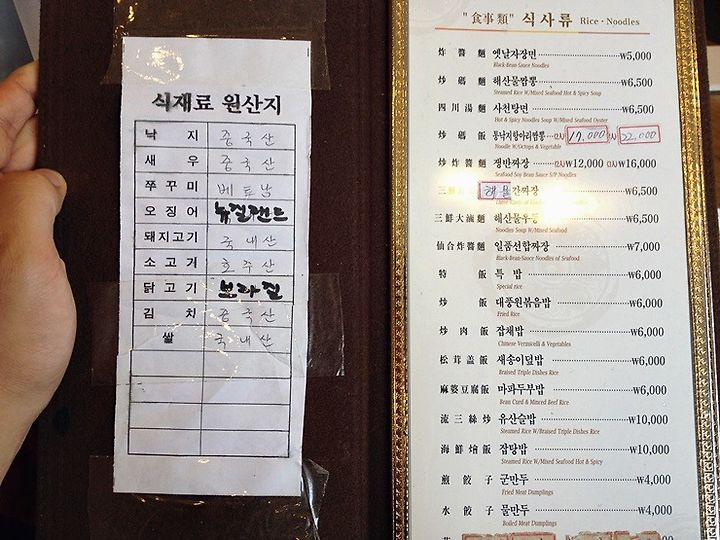 식재료 원산지
낙 지 중국산
새 우 중국산
쭈꾸미 베트남
오징어 뉴질랜드
돼지고기 국내산
소고기 호주산
닭고기 브라질
김 치 중국산
쌀 국내산
"食事類" 식사류 Rice · Noodles
炸醬麵 옛날자장면 ₩5,000
Black-Bean-Sauce Noodles
炒碼麵 해산물짬뽕 ₩6,500
Steamed Rice W/Mixed Seafood Hot & Spicy Soup
四川湯麵 사천탕면 ₩6,500
Hot & Spicy Noodles Soup W/Mixed Seafood Oyster
炒碼飯 통낙지항아리짬뽕 17,000 22,000
Noodle W/Octups & Vegetable
炒炸醬麵 쟁반짜장 ₩12,000 ₩16,000
Seafood Soy Bean Sauce S/P Noodles
三 해물간짜장 ₩6,500
三鮮大滷麵 해산물우동 ₩6,500
Noodles Soup W/Mixed Seafood
仙合炸醬麵 일품선합짜장 ₩7,000
Black-Bean-Sauce Noodles of Seafood
特飯 특밥 ₩6,000
Special rice
炒飯 대풍원볶음밥 ₩6,000
Fried Rice
炒肉飯 잡채밥 ₩6,000
Chinese Vermicelli & Vegetables
松茸蓋飯 새송이덮밥 ₩6,000
Braised Triple Dishes Rice
麻婆豆腐飯 마파두부밥 ₩6,000
Bean Curd & Minced Beef Rice
流三絲炒 유산슬밥 ₩10,000
Steamed Rice W/Braised Triple Dishes Rice
海鮮燴飯 잡탕밥 ₩10,000
Steamed Rice W/Mixed Seafood Hot & Spicy
煎餃子 군만두 ₩4,000
Fried Meat Dumplings
水餃子 물만두 ₩4,000
Boiled Meat Dumplings